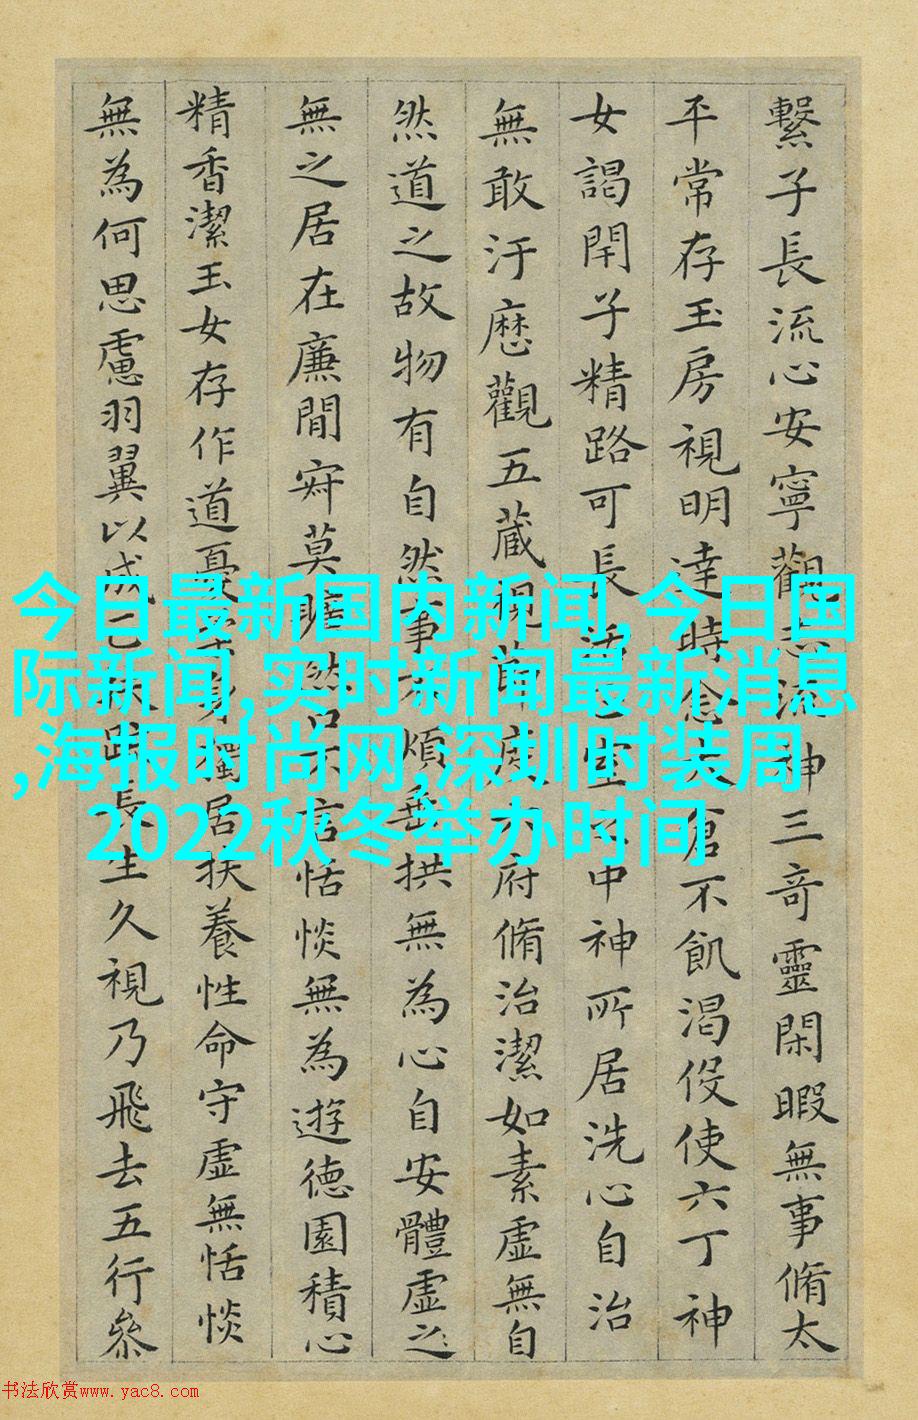 繫子長流心安寧觀志流神三竒靈閑暇無事脩太
平常存玉房視明達時念大倉不飢渴役使六丁神
女謁閇子精路可長活正室之中神所居洗心自治
無敢汙歷觀五藏視節度六府脩治潔如素虛無自
然道之故物有自然事不煩垂拱無為心自安體虛之
無之居在廉間寂莫曠然口不言恬惔無為遊德園積心
精香潔玉女存作道憂柔身獨居扶養性命守虛無恬惔
無為何思慮羽翼以成正扶疏長生久視乃飛去五行參
今日最新国内新闻,今日国
际新闻,实时新闻最新消息
,海报时尚网,深圳时装周
2022秋冬举办时间
书法欣赏www.yac8.com